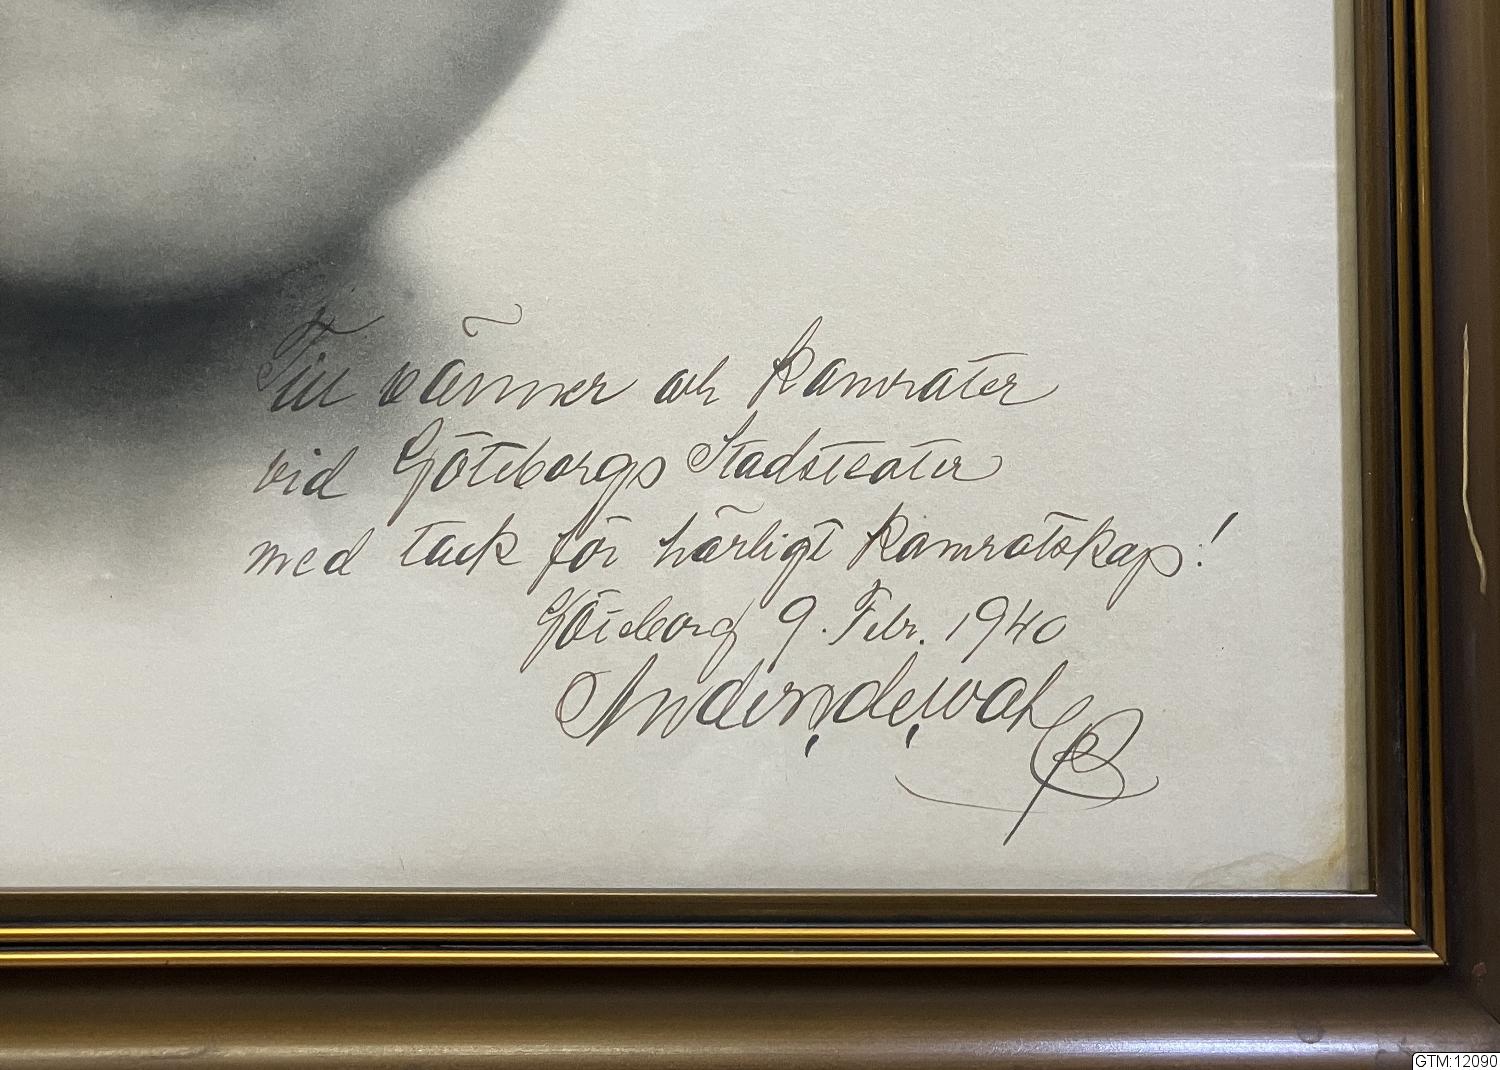 Till vänner och kamrater
vid Göteborgs Stadsteater
med tack för härligt kamratskap!
Göteborg 9. Febr. 1940
Anders de Wahl
GTM:12090